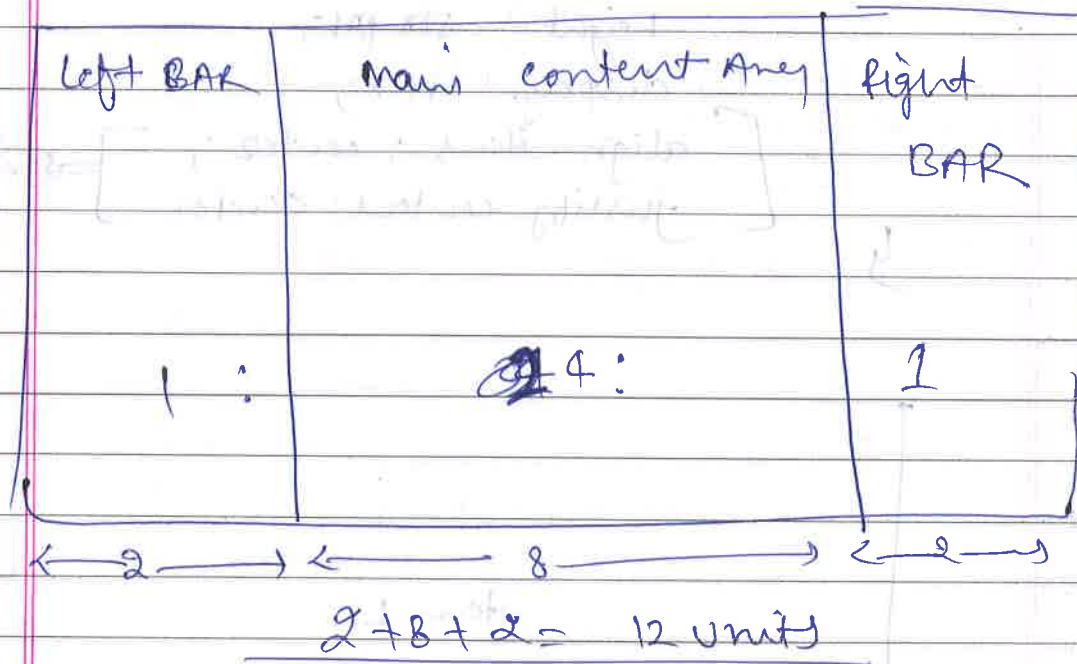 Left BAR Main content Area Right
BAR
1 : 4 : 1
2 8 2
2 + 8 + 2 = 12 units